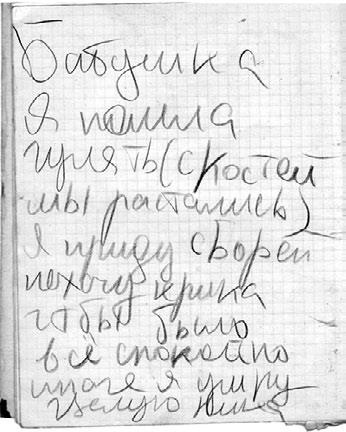 Бабушка
Я пошла
гулять (с Костей
мы растались)
Я приду с борей
нехочу крика
чтобы было
всё спокойно
иначе я умру
целую Юля